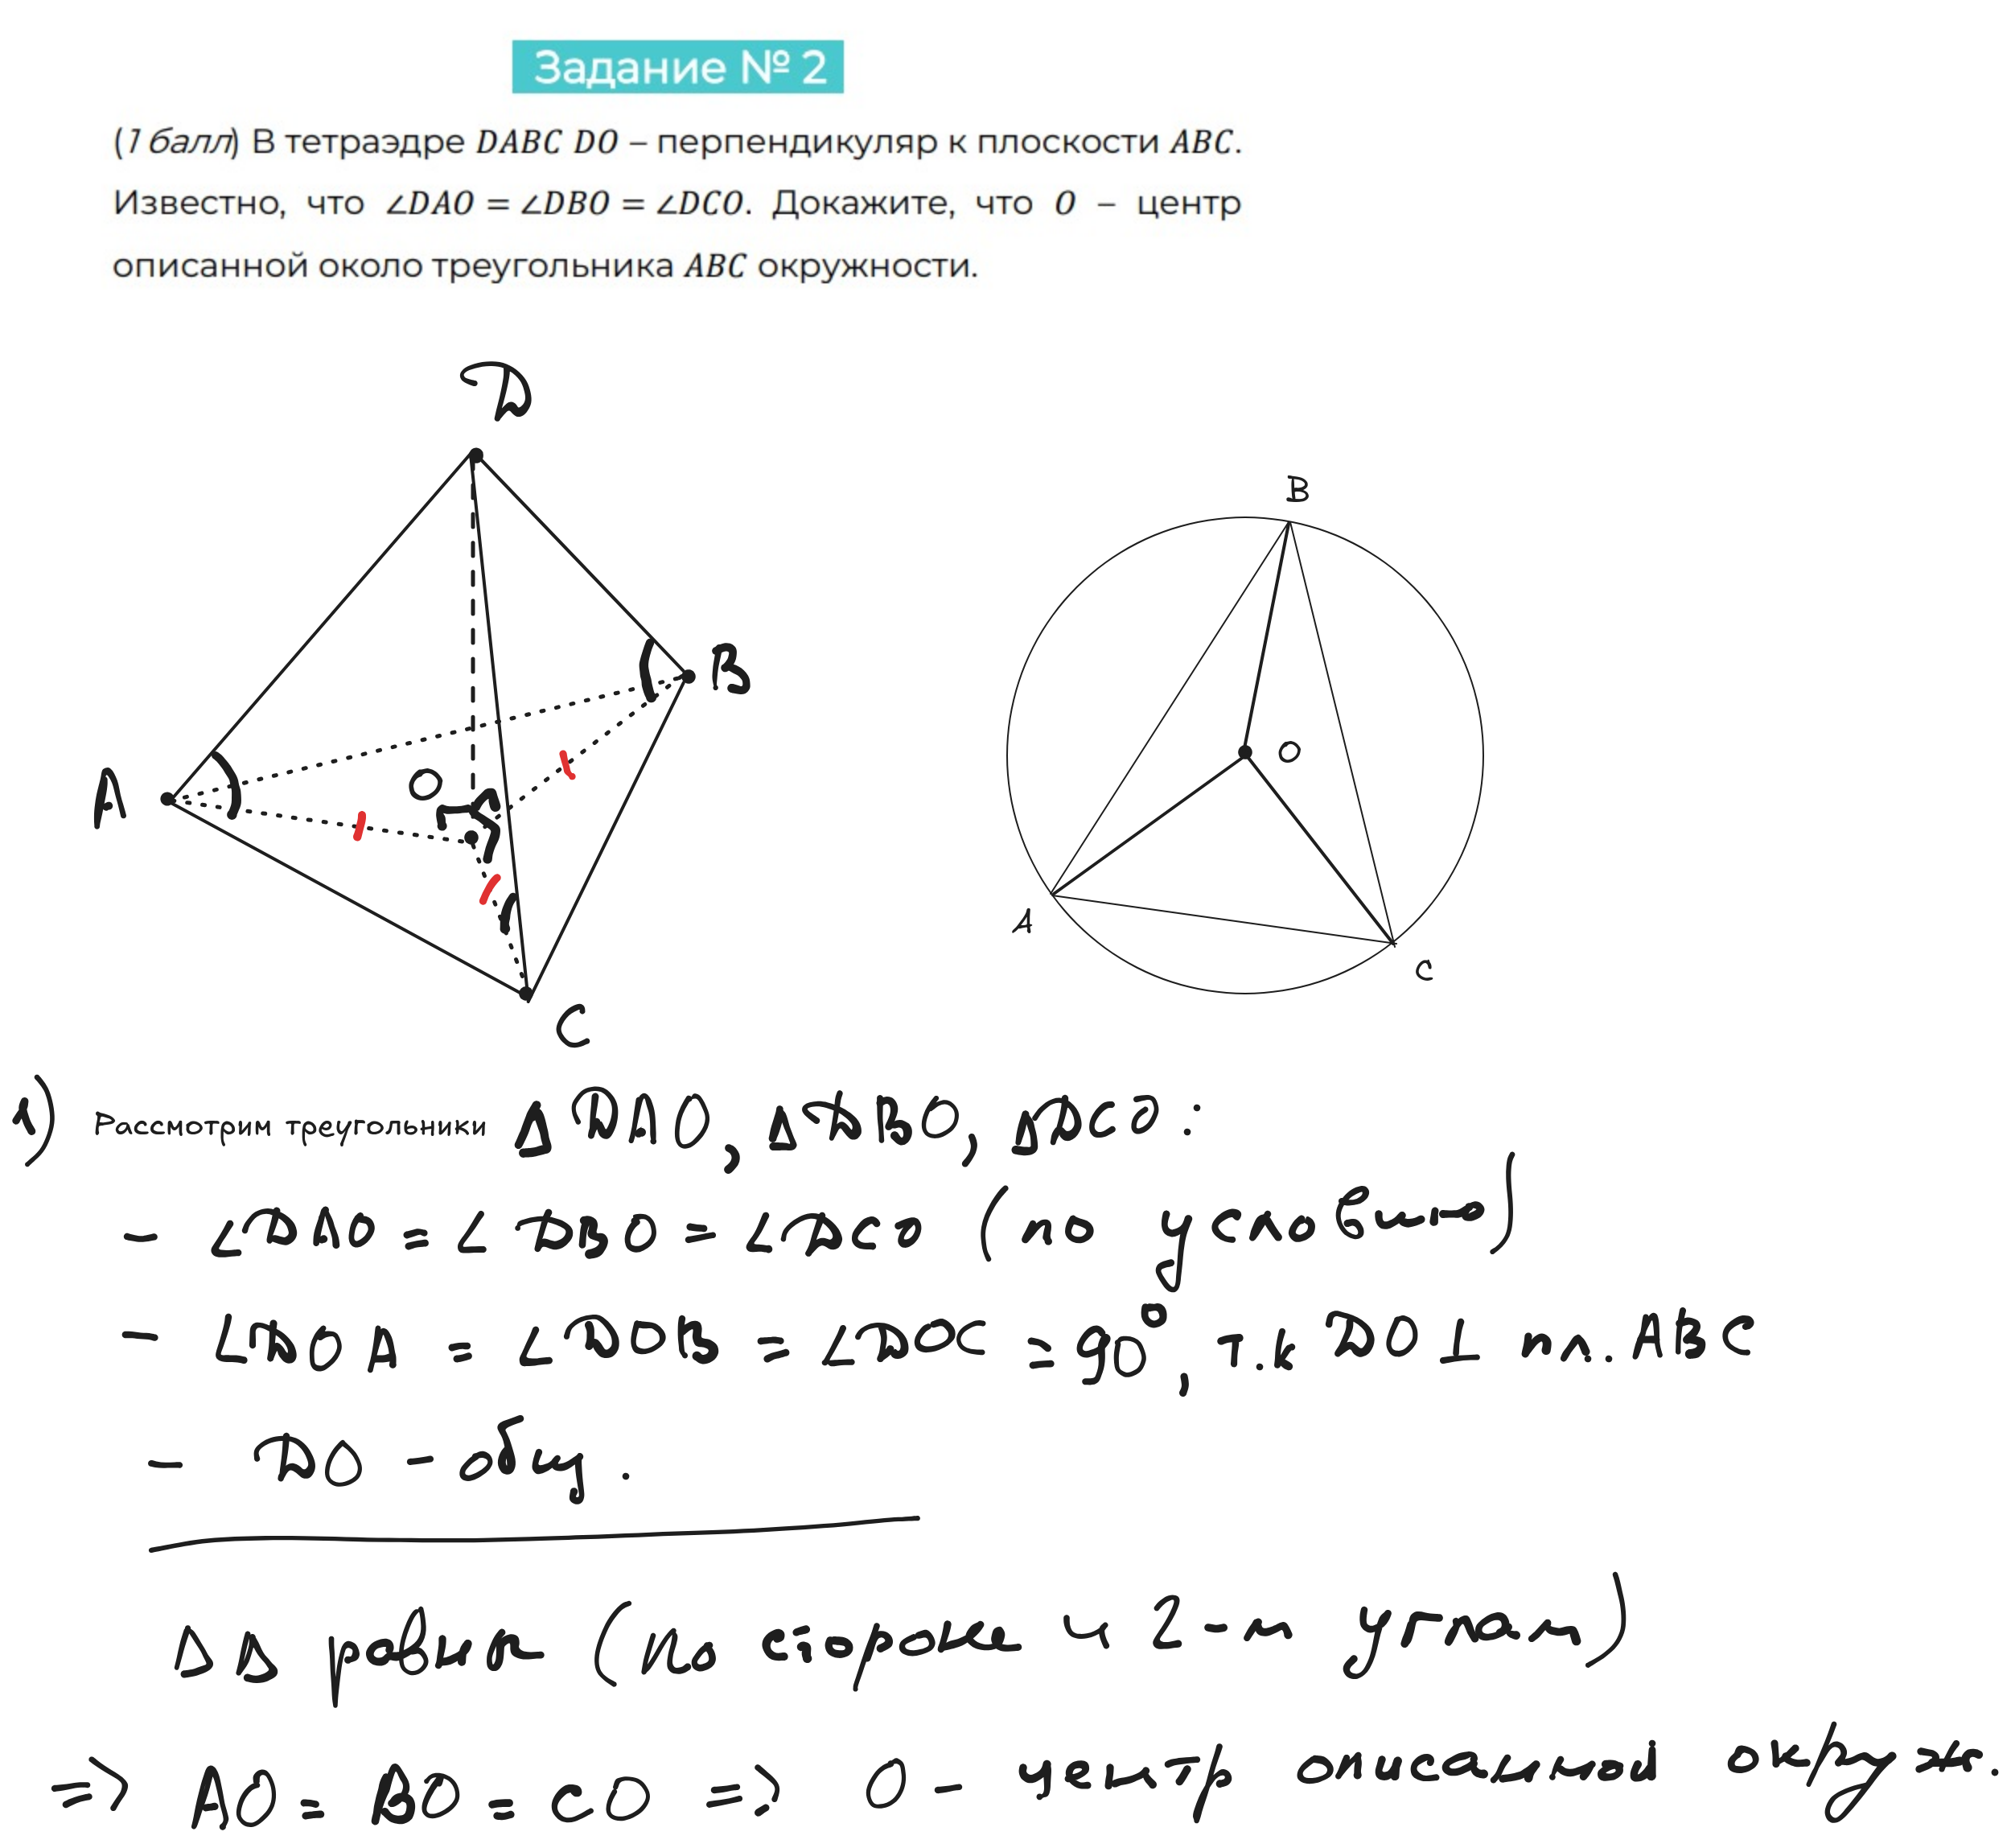 Задание № 2
(1 балл) В тетраэдре DABC DO – перпендикуляр к плоскости ABC.
Известно, что ∠DAO = ∠DBO = ∠DCO. Докажите, что O – центр
описанной около треугольника ABC окружности.
D
B
B
O
A
O
A
C
C
1) Рассмотрим треугольники Δ DAO, Δ DBO, ΔDCO :
- ∠DAO = ∠ DBO = ∠DCO (по условию)
- ∠DOA = ∠DOB = ∠DOC = 90°, т.к DO ⊥ пл. ABC
- DO - общ.
Δ Δ равны (по стороне и 2-м углам)
=> AO = BO = CO => O - центр описанной окруж.